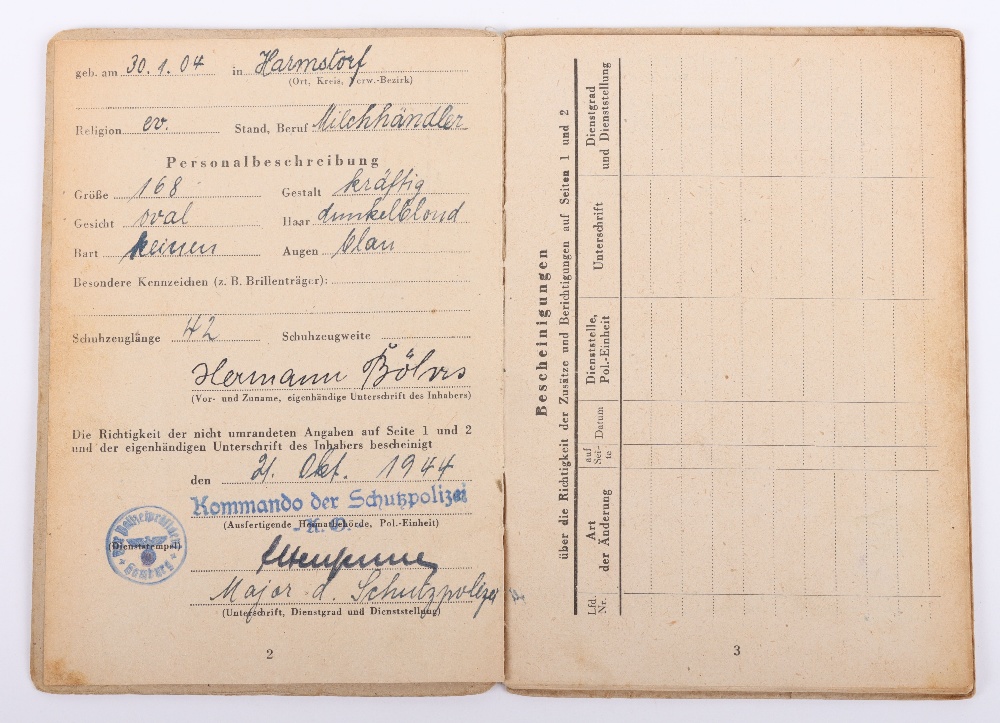 geb. am 30.1.04 in Harmstorf
(Ort, Kreis, Verw.-Bezirk)
Religion ev. Stand, Beruf Milchhändler
Personalbeschreibung
Größe 168 Gestalt kräftig
Gesicht oval Haar dunkelblond
Bart keinen Augen blau
Besondere Kennzeichen (z. B. Brillenträger):
Schuhzeuglänge 42 Schuhzeugweite
Hermann Böhrs
(Vor- und Zuname, eigenhändige Unterschrift des Inhabers)
Die Richtigkeit der nicht umrandeten Angaben auf Seite 1 und 2
und der eigenhändigen Unterschrift des Inhabers bescheinigt
den 21. Okt. 1944
Kommando der Schutzpolizei
(Ausfertigende Heimatbehörde, Pol.-Einheit)
(Dienststempel)
Major d. Schutzpolizei
(Unterschrift, Dienstgrad und Dienststellung)
2
Bescheinigungen
über die Richtigkeit der Zusätze und Berichtigungen auf Seiten 1 und 2
Lfd. Nr.
Art der Änderung
auf Sei-te
Datum
Dienststelle, Pol.-Einheit
Unterschrift
Dienstgrad und Dienststellung
3